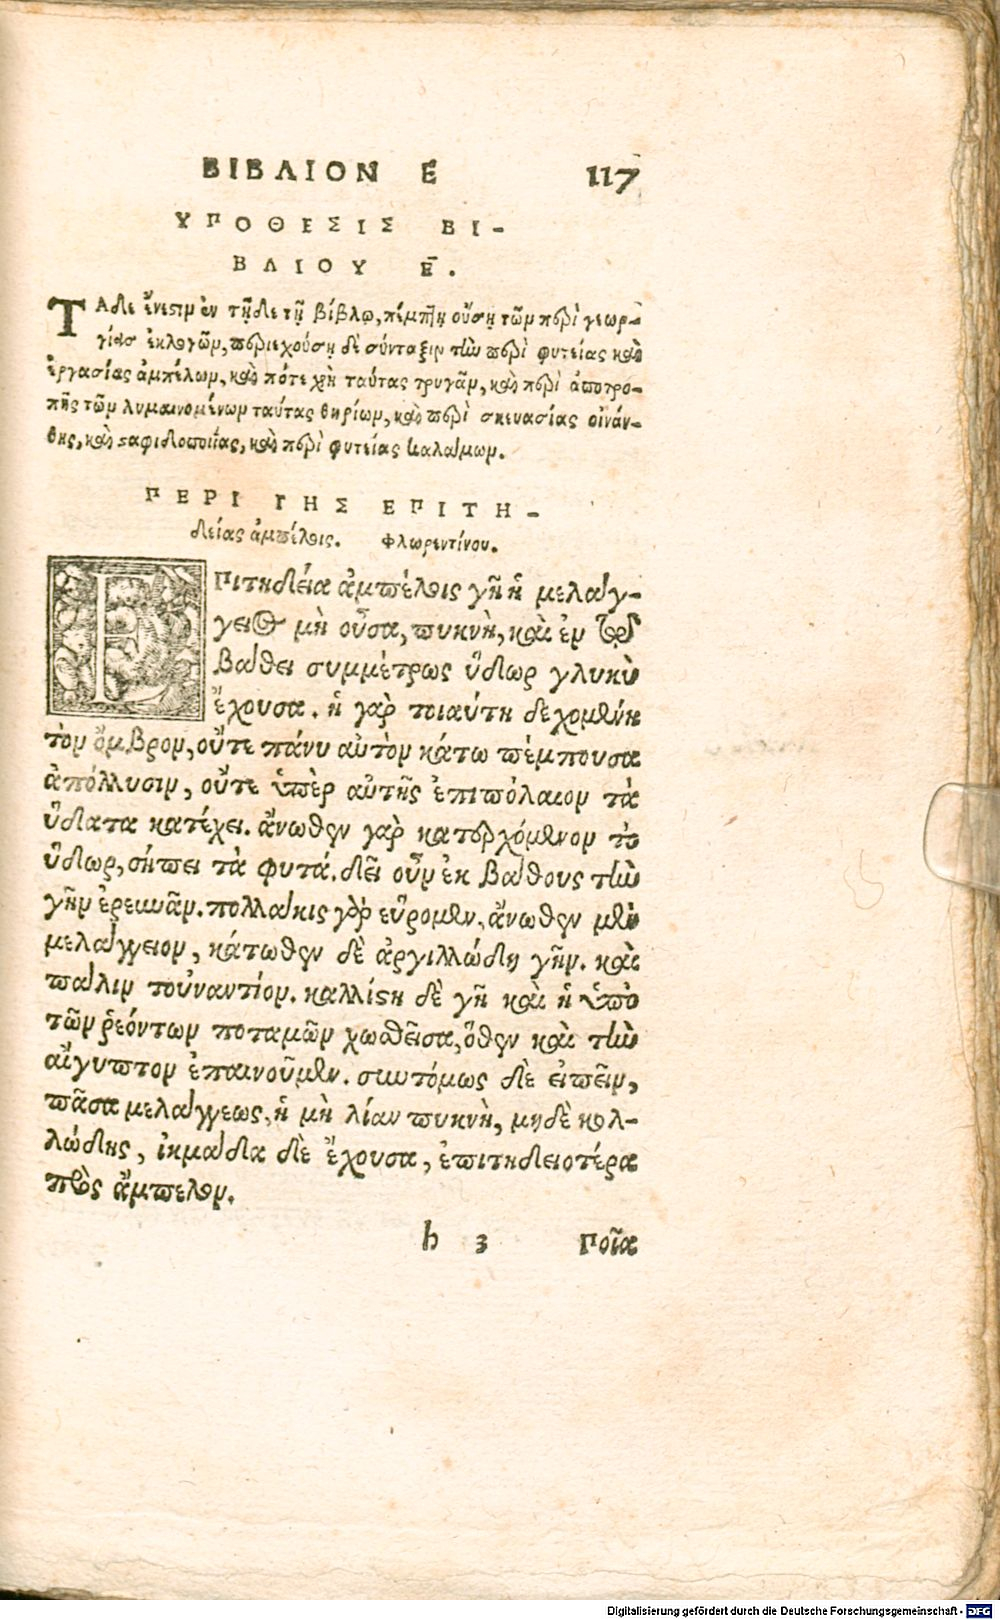 ΒΙΒΛΙΟΝ Ε 117
ΥΠΟΘΕΣΙΣ ΒΙ-
ΒΛΙΟΥ Ε̄.
ΤΑδε ἔνεστιν ἐν τῇδε τῇ βίβλῳ, πέμπτῃ οὔσῃ τῶν περὶ γεωρ-
γίας ἐκλογῶν, περιεχούσῃ δὲ σύνταξιν τὴν περὶ φυτείας καὶ
ἐργασίας ἀμπέλων, καὶ πότε χρὴ ταύτας τρυγᾶν, καὶ περὶ ἀποτρο-
πῆς τῶν λυμαινομένων ταύτας θηρίων, καὶ περὶ σκευασίας οἰνάν-
θης, καὶ σταφιδοποιΐας, καὶ περὶ φυτείας καλάμων.
ΠΕΡΙ ΓΗΣ ΕΠΙΤΗ-
δείας ἀμπέλοις. Φλωρεντίνου.
ΕΠιτηδεία ἀμπέλοις γῆ ἡ μελάγ-
γειος μὴ οὖσα, πυκνὴ, καὶ ἐν τῷ
βάθει συμμέτρως ὕδωρ γλυκὺ
ἔχουσα. ἡ γὰρ τοιαύτη δεχομένη
τὸν ὄμβρον, οὔτε πάνυ αὐτὸν κάτω πέμπουσα
ἀπόλλυσιν, οὔτε ὑπὲρ αὐτῆς ἐπιπόλαιον τὰ
ὕδατα κατέχει. ἄνωθεν γὰρ κατερχόμενον τὸ
ὕδωρ, σήπει τὰ φυτά. δεῖ οὖν ἐκ βάθους τὴν
γῆν ἐρευνᾶν. πολλάκις γὰρ εὕρομεν, ἄνωθεν μὲν
μελάγγειον, κάτωθεν δὲ ἀργιλλώδη γῆν. καὶ
πάλιν τοὐναντίον. καλλίστη δὲ γῆ καὶ ἡ ὑπὸ
τῶν ῥεόντων ποταμῶν χωσθεῖσα, ὅθεν καὶ τὴν
αἴγυπτον ἐπαινοῦμεν. συντόμως δὲ εἰπεῖν,
πᾶσα μελάγγεως, ἡ μὴ λίαν πυκνὴ, μηδὲ κολ-
λώδης, ἰκμάδα δὲ ἔχουσα, ἐπιτηδειοτέρα
πρὸς ἄμπελον.
h 3 Ποῖα
Digitalisierung gefördert durch die Deutsche Forschungsgemeinschaft - DFG